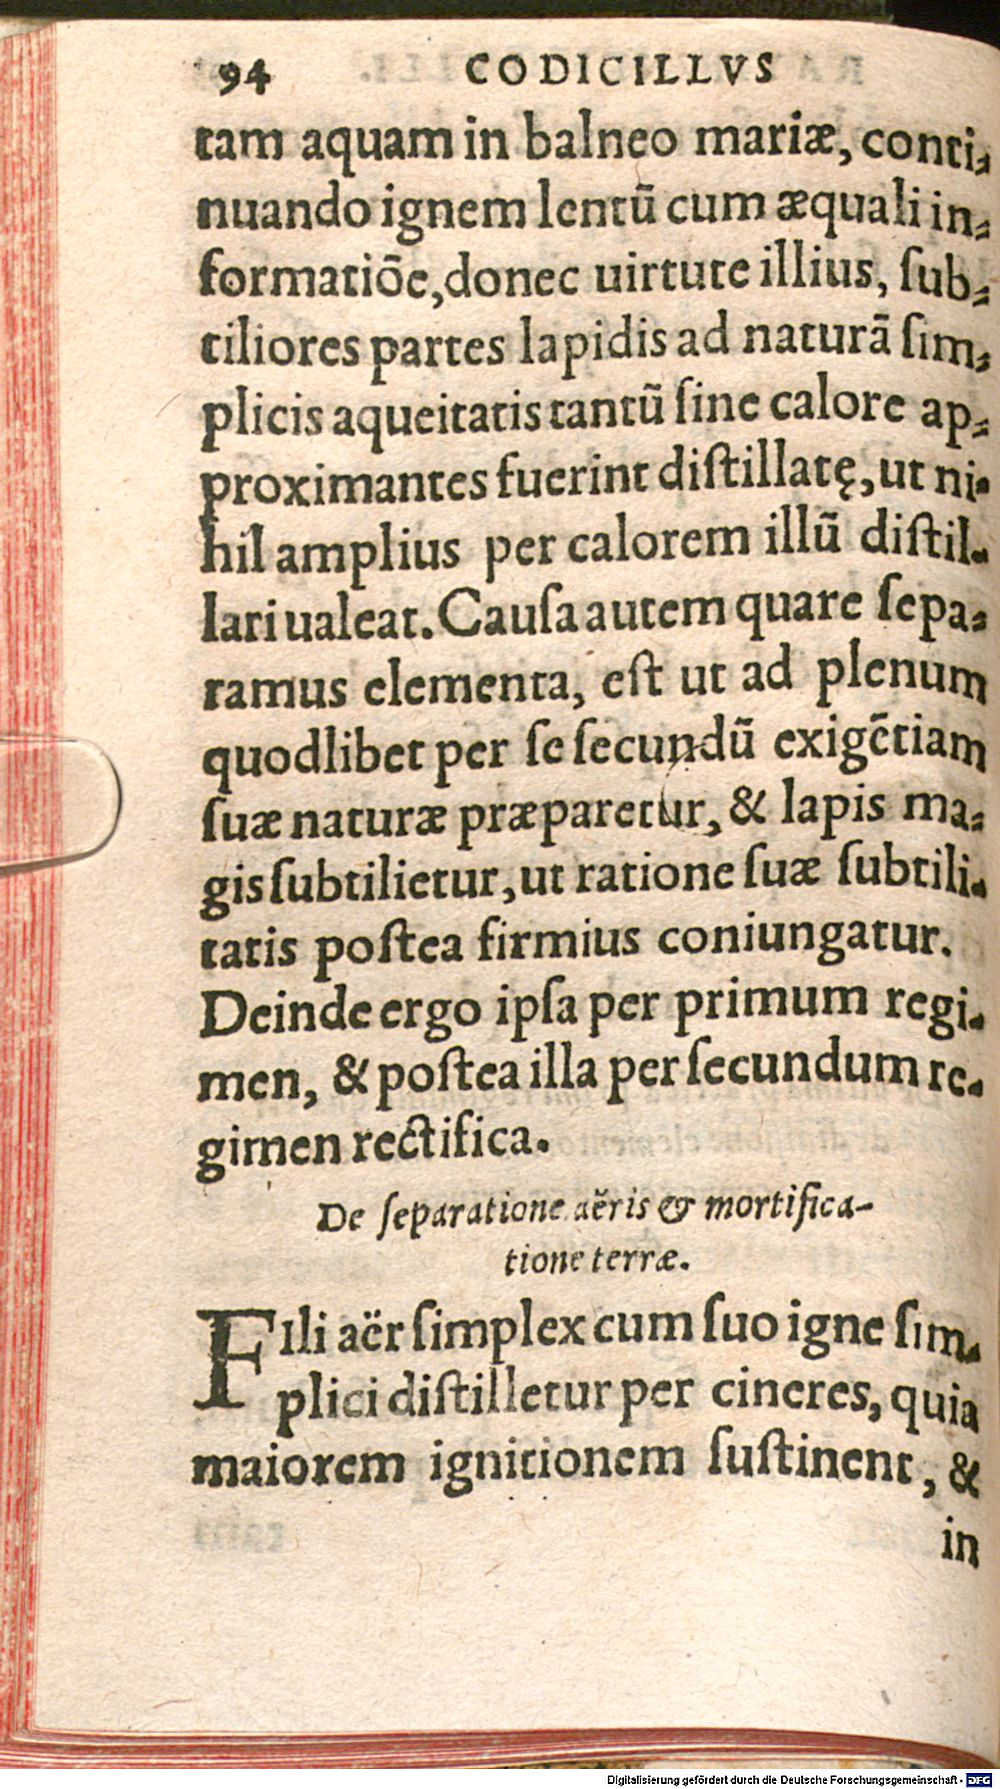 94 CODICILLVS
tam aquam in balneo mariæ, conti-
nuando ignem lentũ cum æquali in-
formatiõe, donec uirtute illius, ſub-
tiliores partes lapidis ad naturã ſim-
plicis aqueitatis tantũ ſine calore ap-
proximantes fuerint diſtillatę, ut ni-
hil amplius per calorem illũ diſtil-
lari ualeat. Cauſa autem quare ſepa-
ramus elementa, eſt ut ad plenum
quodlibet per ſe ſecundũ exigẽtiam
ſuæ naturæ præparetur, & lapis ma-
gis ſubtilietur, ut ratione ſuæ ſubtili-
tatis poſtea firmius coniungatur.
Deinde ergo ipſa per primum regi-
men, & poſtea illa per ſecundum re-
gimen rectifica.
De ſeparatione aëris & mortifica-
tione terræ.
FIli aër ſimplex cum ſuo igne ſim-
plici diſtilletur per cineres, quia
maiorem ignitionem ſuſtinent, &
in
Digitalisierung gefördert durch die Deutsche Forschungsgemeinschaft - DFG